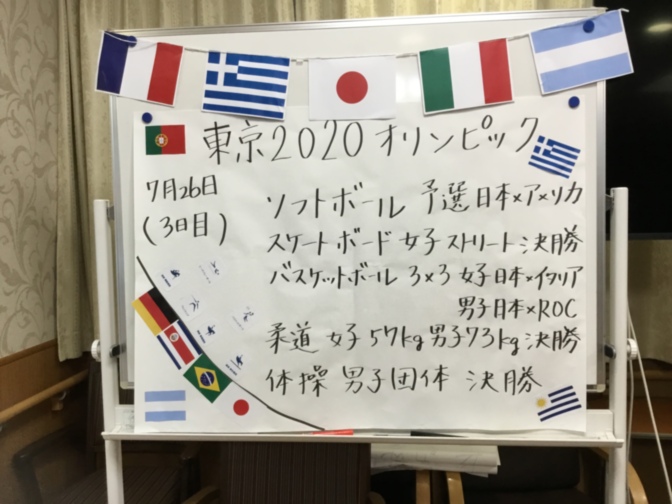 東京2020オリンピック
7月26日
(3日目)
ソフトボール 予選 日本×アメリカ
スケートボード 女子 ストリート 決勝
バスケットボール 3×3 女子 日本×イタリア
男子 日本×ROC
柔道 女子57kg 男子73kg 決勝
体操 男子団体 決勝